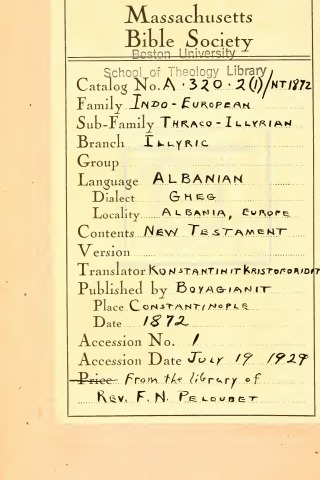 Massachusetts
Bible Society
Boston University
School of Theology Library
Catalog No. A.320.2(1)/NT1872
Family INDO-EUROPEAN
Sub-Family THRACO-ILLYRIAN
Branch ILLYRIC
Group
Language ALBANIAN
Dialect GHEG
Locality ALBANIA, EUROPE
Contents NEW TESTAMENT
Version
Translator KONSTANTINIT KRISTOFORIDIT
Published by BOYAGIANIT
Place CONSTANTINOPLE
Date 1872
Accession No. 1
Accession Date JULY 19 1929
Price From the library of
REV. F. N. PELOUBET